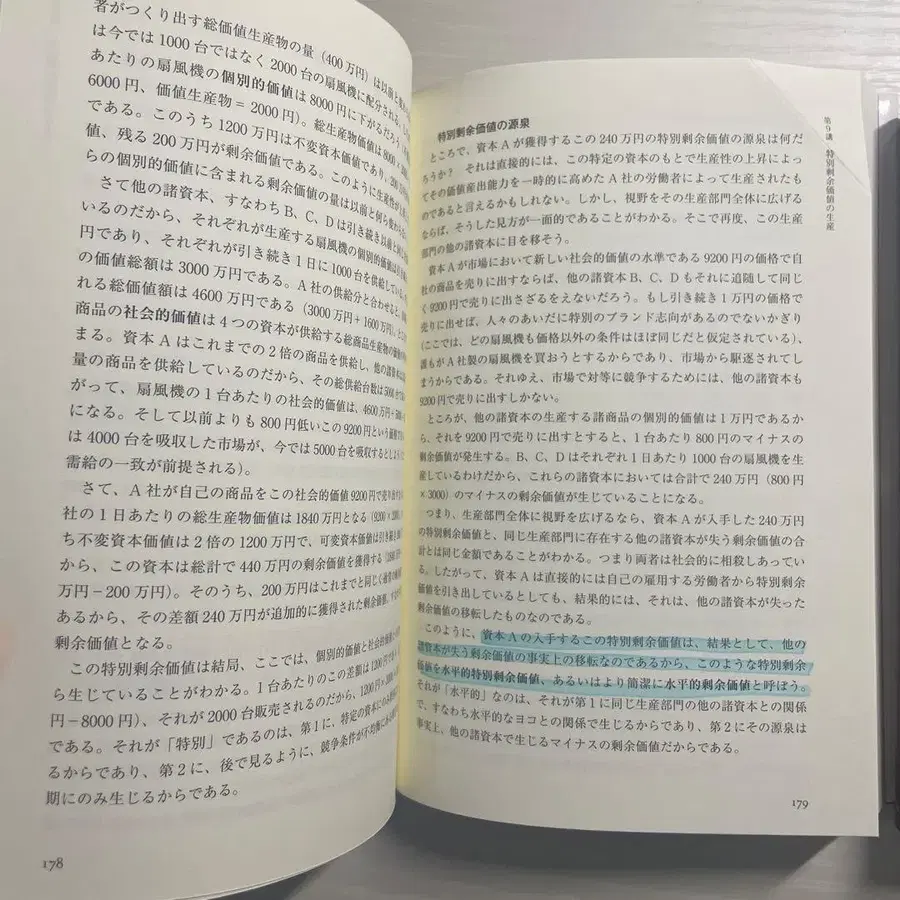 者がつくり出す総価値生産物の量（400万円）は以前と
は今では1000台ではなく2000台の扇風機に配分される
あたりの扇風機の個別的価値は8000円に下がるだろう
6000円、価値生産物＝2000円）。総生産物価値は8000×
である。このうち1200万円は不変資本価値であり、200
値、残る200万円が剰余価値である。このように生産性が
らの個別的価値に含まれる剰余価値の量は以前と何ら変わら
さて他の諸資本、すなわちB、C、Dは引き続き以前と同じ
いるのだから、それぞれが生産する扇風機の個別的価値は
円であり、それぞれが引き続き1日に1000台を供給している
の価値総額は3000万円である。A社の供給分と合わせると、
れる総価値額は4600万円である（3000万円＋1600万円）。
商品の社会的価値は4つの資本が供給する総商品生産物の価値の
まる。資本Aはこれまでの2倍の商品を供給し、他の諸資本は
量の商品を供給しているのだから、その総供給台数は5000台
がって、扇風機の1台あたりの社会的価値は、4600万円÷5000
になる。そして以前よりも800円低いこの9200円という
は4000台を吸収した市場が、今では5000台を吸収すると
需給の一致が前提される）。
さて、A社が自己の商品をこの社会的価値9200円で売り出す
社の1日あたりの総生産物価値は1840万円となる（9200×
ち不変資本価値は2倍の1200万円で、可変資本価値は引き続き
から、この資本は総計で440万円の剰余価値を獲得する（1840万円
万円－200万円）。そのうち、200万円はこれまでと同じく通常の
あるから、その差額240万円が追加的に獲得された剰余価値、すなわち
剰余価値となる。
この特別剰余価値は結局、ここでは、個別的価値と社会的価値と
ら生じていることがわかる。1台あたりのこの差額は1200円
円－8000円）、それが2000台販売されるのだから、1200円×
である。それが「特別」であるのは、第1に、特定の資本にのみ
るからであり、第2に、後で見るように、競争条件が不均衡に
期にのみ生じるからである。
178
第9講 特別剰余価値の生産
特別剰余価値の源泉
ところで、資本Aが獲得するこの240万円の特別剰余価値の源泉は何だ
ろうか？ それは直接的には、この特定の資本のもとで生産性の上昇によっ
てその価値産出能力を一時的に高めたA社の労働者によって生産されたも
のであると言えるかもしれない。しかし、視野をその生産部門全体に広げる
ならば、そうした見方が一面的であることがわかる。そこで再度、この生産
部門の他の諸資本に目を移そう。
資本Aが市場において新しい社会的価値の水準である9200円の価格で自
社の商品を売りに出すならば、他の諸資本B、C、Dもそれに追随して同じ
く9200円で売りに出さざるをえないだろう。もし引き続き1万円の価格で
売りに出せば、人々のあいだに特別のブランド志向があるのでないかぎり
（ここでは、どの扇風機も価格以外の条件はほぼ同じだと仮定されている）、
誰もがA社製の扇風機を買おうとするからであり、市場から駆逐されてし
まうからである。それゆえ、市場で対等に競争するためには、他の諸資本も
9200円で売りに出すしかない。
ところが、他の諸資本の生産する諸商品の個別的価値は1万円であるか
ら、それを9200円で売りに出すとすると、1台あたり800円のマイナスの
剰余価値が発生する。B、C、Dはそれぞれ1日あたり1000台の扇風機を生
産しているわけだから、これらの諸資本においては合計で240万円（800円
×3000）のマイナスの剰余価値が生じていることになる。
つまり、生産部門全体に視野を広げるなら、資本Aが入手した240万円
の特別剰余価値と、同じ生産部門に存在する他の諸資本が失う剰余価値の合
計とは同じ金額であることがわかる。つまり両者は社会的に相殺しあってい
る。したがって、資本Aは直接的には自己の雇用する労働者から特別剰余
価値を引き出しているとしても、結果的には、それは、他の諸資本が失った
剰余価値の移転したものなのである。
このように、資本Aの入手するこの特別剰余価値は、結果として、他の
諸資本が失う剰余価値の事実上の移転なのであるから、このような特別剰余
価値を水平的特別剰余価値、あるいはより簡潔に水平的剰余価値と呼ぼう。
それが「水平的」なのは、それが第1に同じ生産部門の他の諸資本との関係
で、すなわち水平的なヨコとの関係で生じるからであり、第2にその源泉は
事実上、他の諸資本で生じるマイナスの剰余価値だからである。
179